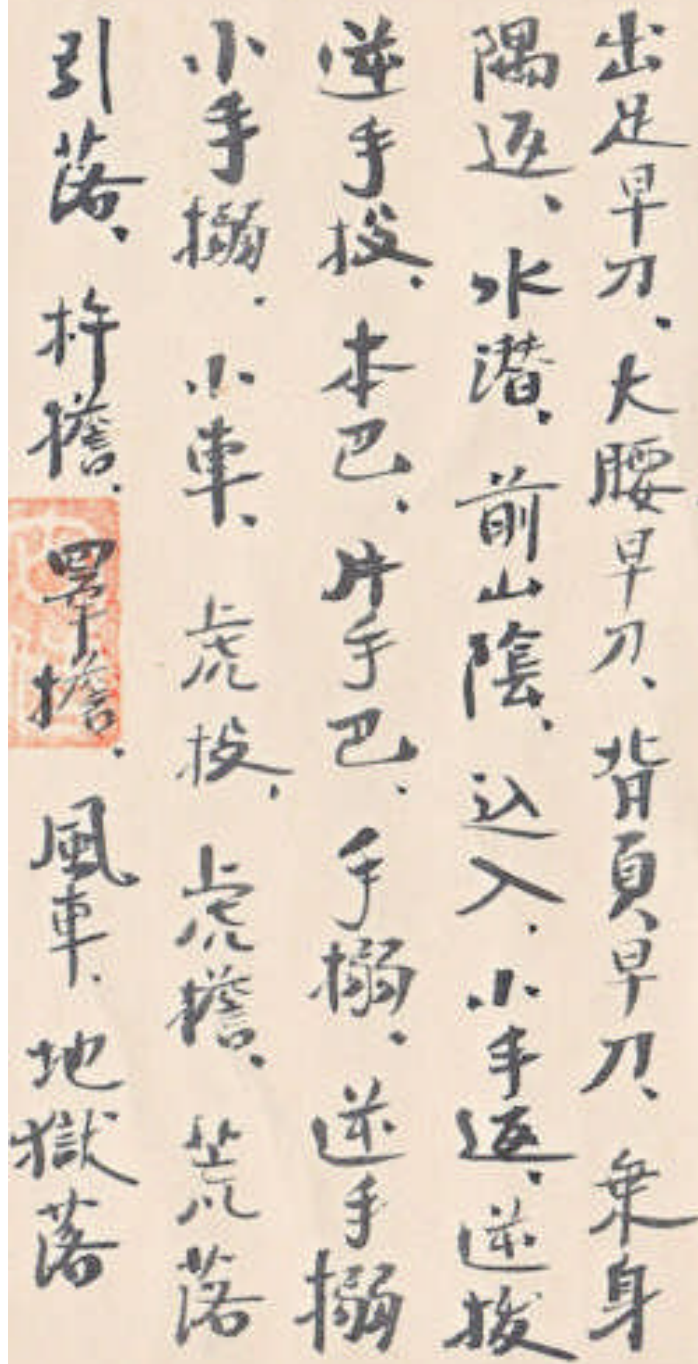 出足早刀、大腰早刀、背負早刀、乗身
隅返、水潜、前山陰、込入、小手返、逆抜
逆手投、本巴、片手巴、手搦、逆手搦
小手搦、小車、虎投、虎擔、荒落
引落、杵擔、擔、風車、地獄落